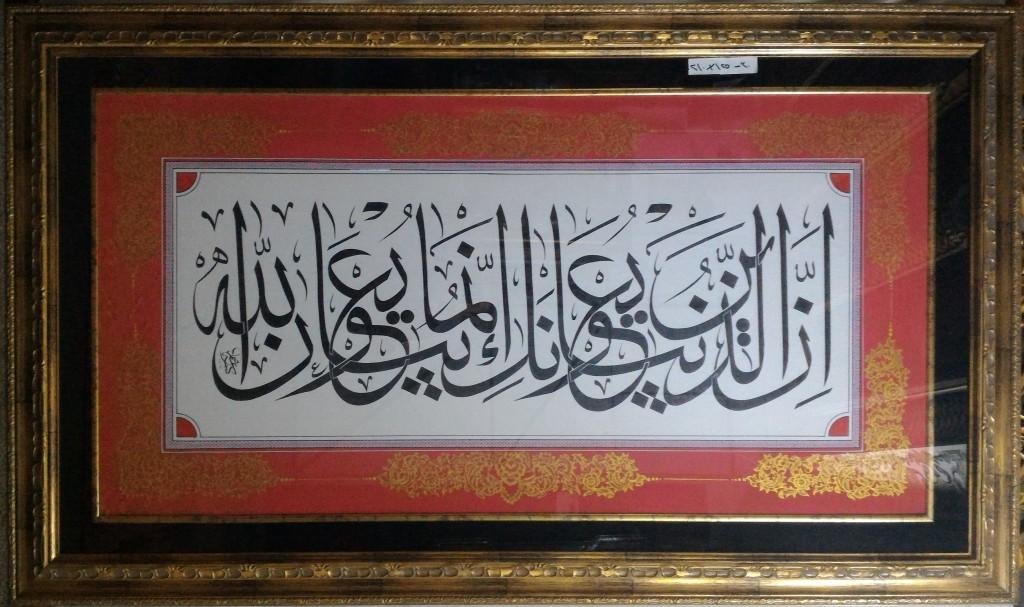 إِنَّ الَّذِينَ يُبَايِعُونَكَ إِنَّمَا يُبَايِعُونَ اللَّهَ